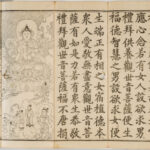 應心念若有女人設欲求男
禮拜供養觀世音菩薩便生
福德智慧之男設欲求女便
生端正有相之女宿植德本
衆人愛敬無盡意觀世音菩
薩有如是力若有衆生恭敬
禮拜觀世音菩薩福不唐捐